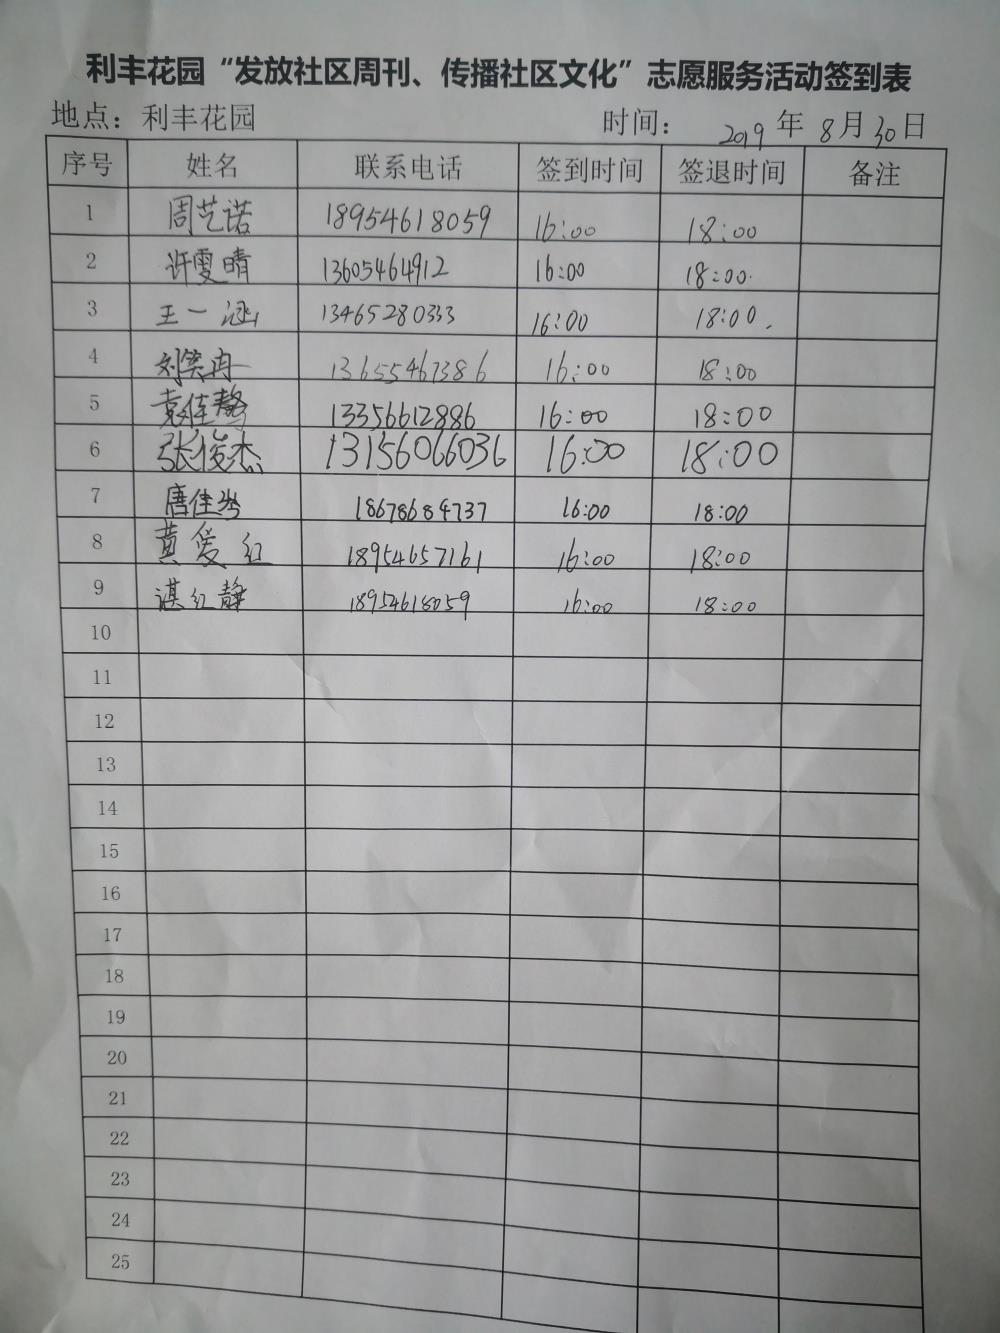 利丰花园“发放社区周刊、传播社区文化”志愿服务活动签到表
地点：利丰花园 时间： 2019 年 8 月 30 日
序号 姓名 联系电话 签到时间 签退时间 备注
1 周艺诺 18954618059 16:00 18:00
2 许雯晴 13605464912 16:00 18:00
3 王一涵 13465280333 16:00 18:00
4 刘笑冉 13655467386 16:00 18:00
5 袁佳骜 13356612886 16:00 18:00
6 张俊杰 13156066036 16:00 18:00
7 唐佳 18678684737 16:00 18:00
8 黄爱红 18954657161 16:00 18:00
9 谌红静 18954618059 16:00 18:00
10
11
12
13
14
15
16
17
18
19
20
21
22
23
24
25